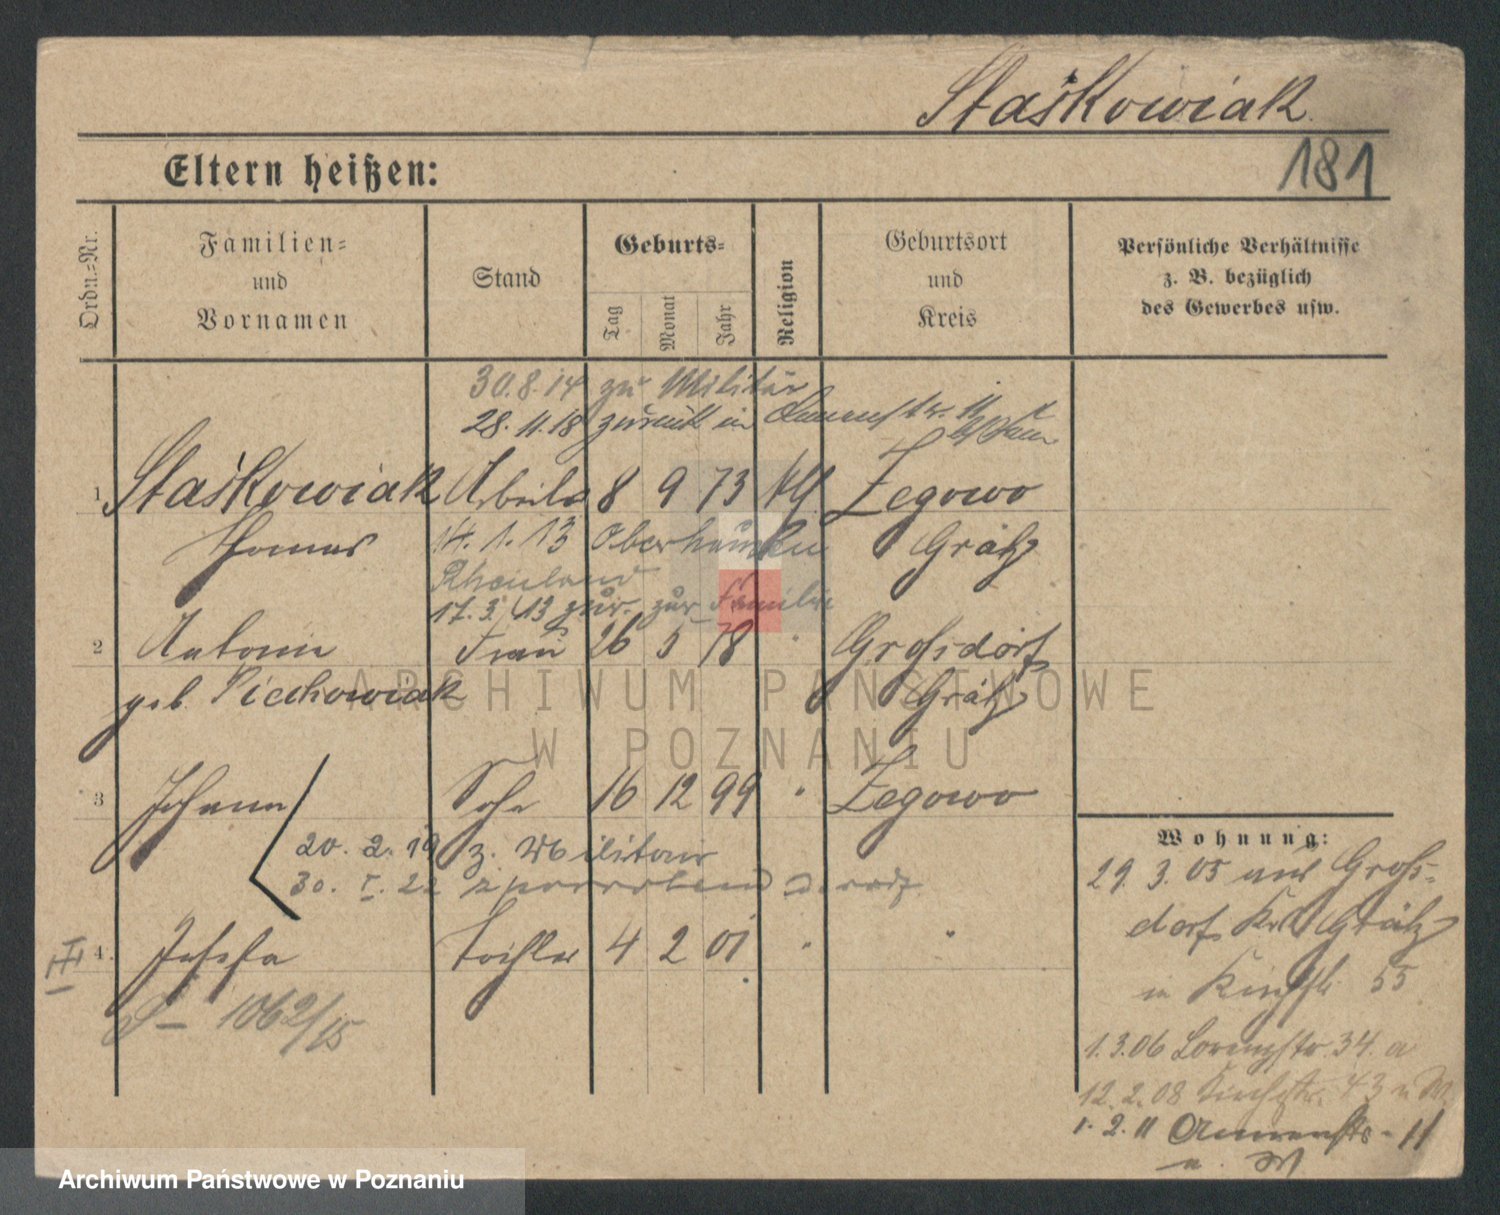 Staśkowiak
181
Eltern heißen:
Ordn.=Nr.
Familien=
und
Vornamen
Stand
Geburts=
Tag
Monat
Jahr
Religion
Geburtsort
und
Kreis
Persönliche Verhältnisse
z. B. bezüglich
des Gewerbes usw.
30.8.14 zu Militär
28.11.18 zurück in 11
1 Staśkowiak Arbeiter 8 9 73 kth Zegowo
Thomas 14.1.13 Oberhausen Grätz
Rheinland
17.3.13 zur. zur Familie
2 Antonie Frau 26 5 78 " Großdorf
geb. Piechowiak Grätz
3 Johann Sohn 16 12 99 " Zegowo
20.2.19 z. Militair
30. I. 22
4. Josefa Tochter 4 2 01 " "
1062/15
Wohnung:
29.3.05 aus Groß-
dorf Krs Grätz
in Kirchstr. 55
1.3.06 Lorenzstr. 34. a
12.2.08 Kirchstr. 43
1.2.11 11
ARCHIWUM PAŃSTWOWE
W POZNANIU
Archiwum Państwowe w Poznaniu